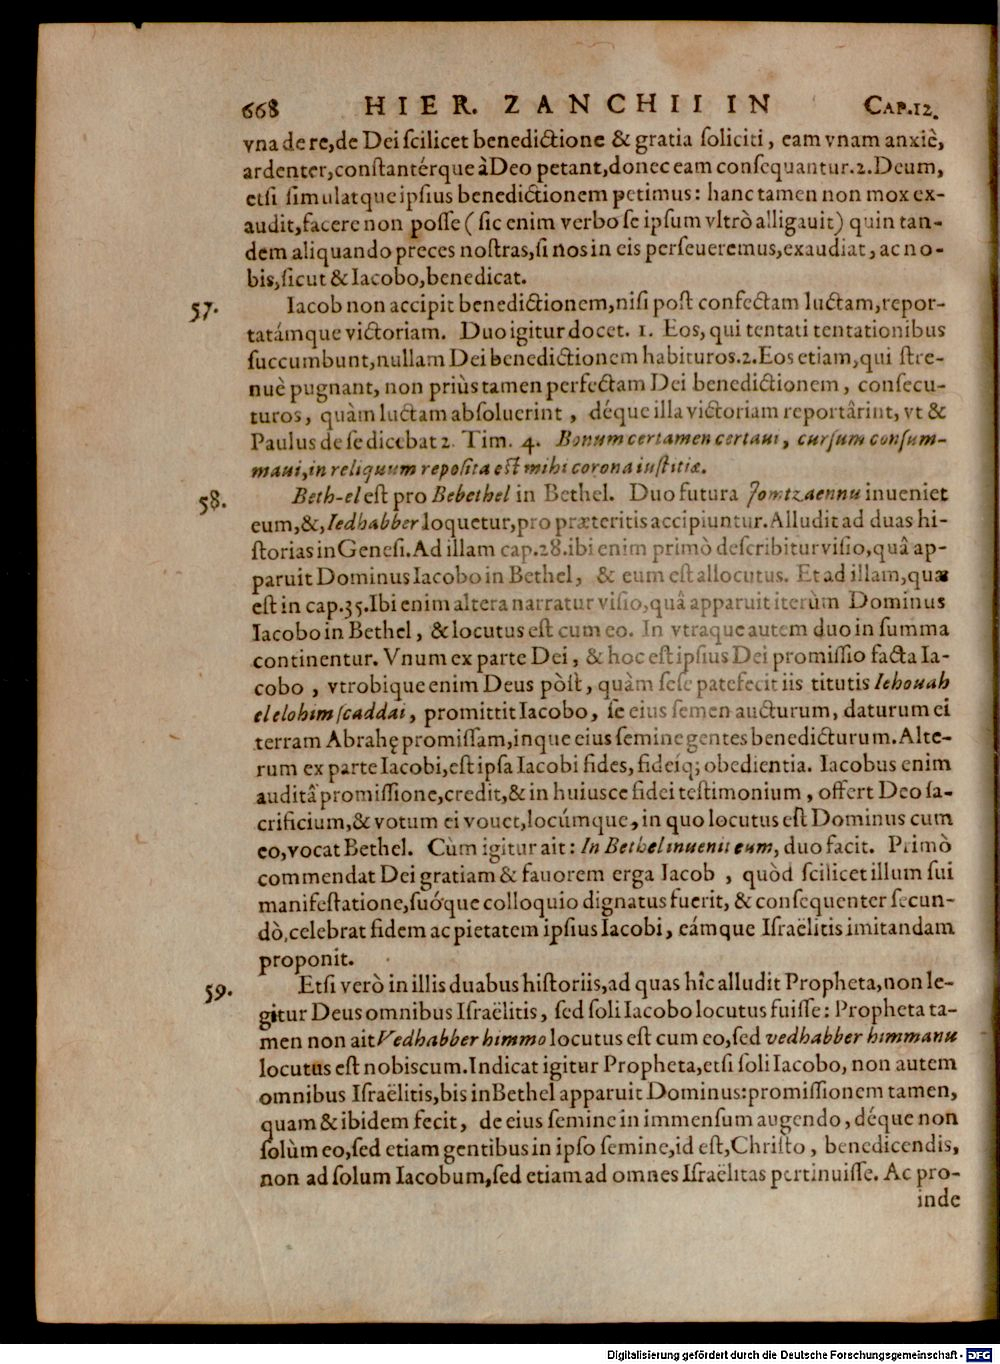 668 HIER. ZANCHII IN CAP.12.
vna de re, de Dei ſcilicet benedictione & gratia ſoliciti, eam vnam anxiè,
ardenter, conſtantérque à Deo petant, donec eam conſequantur. 2. Deum,
etſi ſimulatque ipſius benedictionem petimus: hanc tamen non mox ex-
audit, facere non poſſe (ſic enim verbo ſe ipſum vltrò alligauit) quin tan-
dem aliquando preces noſtras, ſi nos in eis perſeueremus, exaudiat, ac no-
bis, ſicut & Iacobo, benedicat.
57. Iacob non accipit benedictionem, niſi poſt confectam luctam, repor-
tatámque victoriam. Duo igitur docet. 1. Eos, qui tentati tentationibus
ſuccumbunt, nullam Dei benedictionem habituros. 2. Eos etiam, qui ſtre-
nuè pugnant, non priùs tamen perfectam Dei benedictionem, conſecu-
turos, quàm luctam abſoluerint, déque illa victoriam reportârint, vt &
Paulus de ſe dicebat 2. Tim. 4. Bonum certamen certaui, curſum conſum-
maui, in reliquum repoſita eſt mihi corona iuſtitiæ.
58. Beth-el eſt pro Bebethel in Bethel. Duo futura Jomtzaennu inueniet
eum, &, Iedhabber loquetur, pro præteritis accipiuntur. Alludit ad duas hi-
ſtorias in Geneſi. Ad illam cap. 28. ibi enim primò deſcribitur viſio, quâ ap-
paruit Dominus Iacobo in Bethel, & eum eſt allocutus. Et ad illam, quæ
eſt in cap. 35. Ibi enim altera narratur viſio, quâ apparuit iterùm Dominus
Iacobo in Bethel, & locutus eſt cum eo. In vtraque autem duo in ſumma
continentur. Vnum ex parte Dei, & hoc eſt ipſius Dei promiſſio facta Ia-
cobo, vtrobique enim Deus pòſt, quàm ſeſe patefecit iis titutis Iehouah
elelohim ſcaddai, promittit Iacobo, ſe eius ſemen aucturum, daturum ei
terram Abrahę promiſſam, inque eius ſemine gentes benedicturum. Alte-
rum ex parte Iacobi, eſt ipſa Iacobi fides, fideiq; obedientia. Iacobus enim
auditâ promiſſione, credit, & in huiusce fidei teſtimonium, offert Deo ſa-
crificium, & votum ei vouet, locúmque, in quo locutus eſt Dominus cum
eo, vocat Bethel. Cùm igitur ait: In Bethel inuenit eum, duo facit. Primò
commendat Dei gratiam & fauorem erga Iacob, quòd ſcilicet illum ſui
manifeſtatione, ſuóque colloquio dignatus fuerit, & conſequenter ſecun-
dò, celebrat fidem ac pietatem ipſius Iacobi, eámque Iſraëlitis imitandam
proponit.
59. Etſi verò in illis duabus hiſtoriis, ad quas hîc alludit Propheta, non le-
gitur Deus omnibus Iſraëlitis, ſed ſoli Iacobo locutus fuiſſe: Propheta ta-
men non ait Vedhabber himmo locutus eſt cum eo, ſed vedhabber himmanu
locutus eſt nobiscum. Indicat igitur Propheta, etſi ſoli Iacobo, non autem
omnibus Iſraëlitis, bis in Bethel apparuit Dominus: promiſſionem tamen,
quam & ibidem fecit, de eius ſemine in immenſum augendo, déque non
ſolùm eo, ſed etiam gentibus in ipſo ſemine, id eſt, Chriſto, benedicendis,
non ad ſolum Iacobum, ſed etiam ad omnes Iſraëlitas pertinuiſſe. Ac pro-
inde
Digitalisierung gefördert durch die Deutsche Forschungsgemeinschaft - DFG